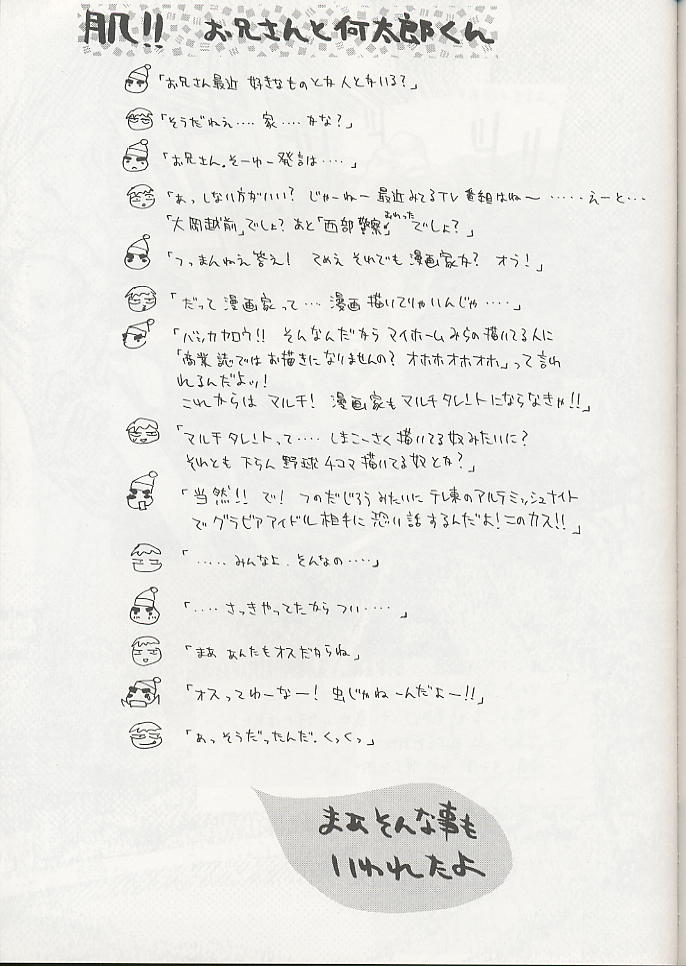 肌!! お兄さんと何太郎くん
「お兄さん最近 好きなものとか人とかいる?」
「そうだねぇ‥‥ 家‥‥かな?」
「お兄さん.そーゆー発言は‥‥」
「あっしない方がいい? じゃーねー最近みてるTV番組はね〜 ‥‥‥えーと‥‥
「大岡越前」でしょ?あと「西部警察」おわった でしょ?」
「つっまんねえ答え! てめえ それでも 漫画家か? オウ!」
「だって 漫画家って‥‥ 漫画 描いてりゃいんじゃ‥‥」
「バッカヤロウ!! そんなんだから マイホームみらの描いてる人に
「商業誌ではお描きになりませんの? オホホオホオホ」って言わ
れるんだよッ!
これからは マルチ! 漫画家も マルチタレントにならなきゃ!!」
「マルチタレントって‥‥ しまこーさく描いてる奴みたいに?
それとも 下らん 野球4コマ描いてる奴とか?」
「当然!! で! つのだじろうみたいに テレ東のアルテミッシュナイト
でグラビアアイドル相手に 恐い話するんだよ!このカス!!」
「‥‥‥みんなよ.そんなの‥‥」
「‥‥ さっきやってたから つい‥‥ 」
「まあ あんたもオスだからね」
「オスってゆーなー! 虫じゃねーんだよー!!」
「あっそうだったんだ.くっくっ」
まあそんな事も
いわれたよ